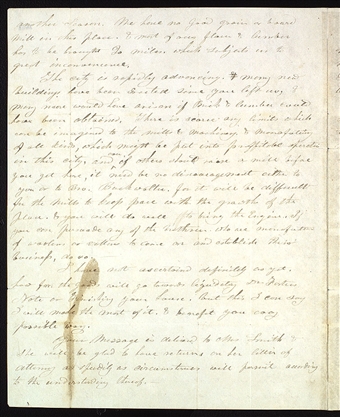 another Season. We have no good grain or board
Mill in this place. & most of our flour & Lumber
has to be brought 20 miles which subjects us to
great inconvenience.
The city is rapidly advancing, & many new
buildings have been erected since you left us, &
many more would have arisen if Brick & Lumber could
have been obtained. There is scarce any limits which
can be imagined to the mills & machinery & manufactory
of all kinds, which might be put into profitable operation
in this city, and if others should raise a mill before
you get here, it need be no discouragement either to
you or to Bro. for it will be difficult
for the mills to keep pace with the growth of the
place. & you will do well to bring the Engine. If
you can persuade any of the brethren who are manufacturers
of woolens or cottons to come on and establish their
business, do so.
I have not ascertained definitely as yet.
how far the will go towards liquidating Mr.
Note or building your house. but this I can say
I will make the most of it. & benefit you any
possible way.
Your Message is delivered to Mrs. Smith &
she will be glad to have returns on her letter of
as speedily as circumstances will permit according
to the understanding thereof.—